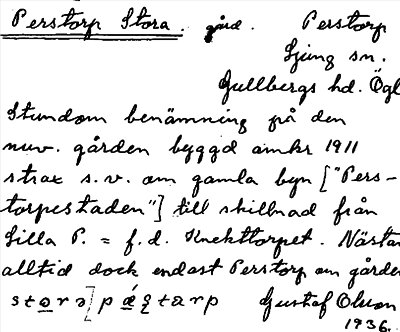 Perstorp Stora. gård. Perstorp
Ljung sn.
Gullbergs hd. Ögl
Stundom benämning på den
nuv. gården byggd omkr 1911
strax s.v. om gamla byn ["Pers-
torpestaden"] till skillnad från
Lilla P. = f.d. Knekttorpet. Nästan
alltid dock endast Perstorp om gården
Gustaf Olson
1936.